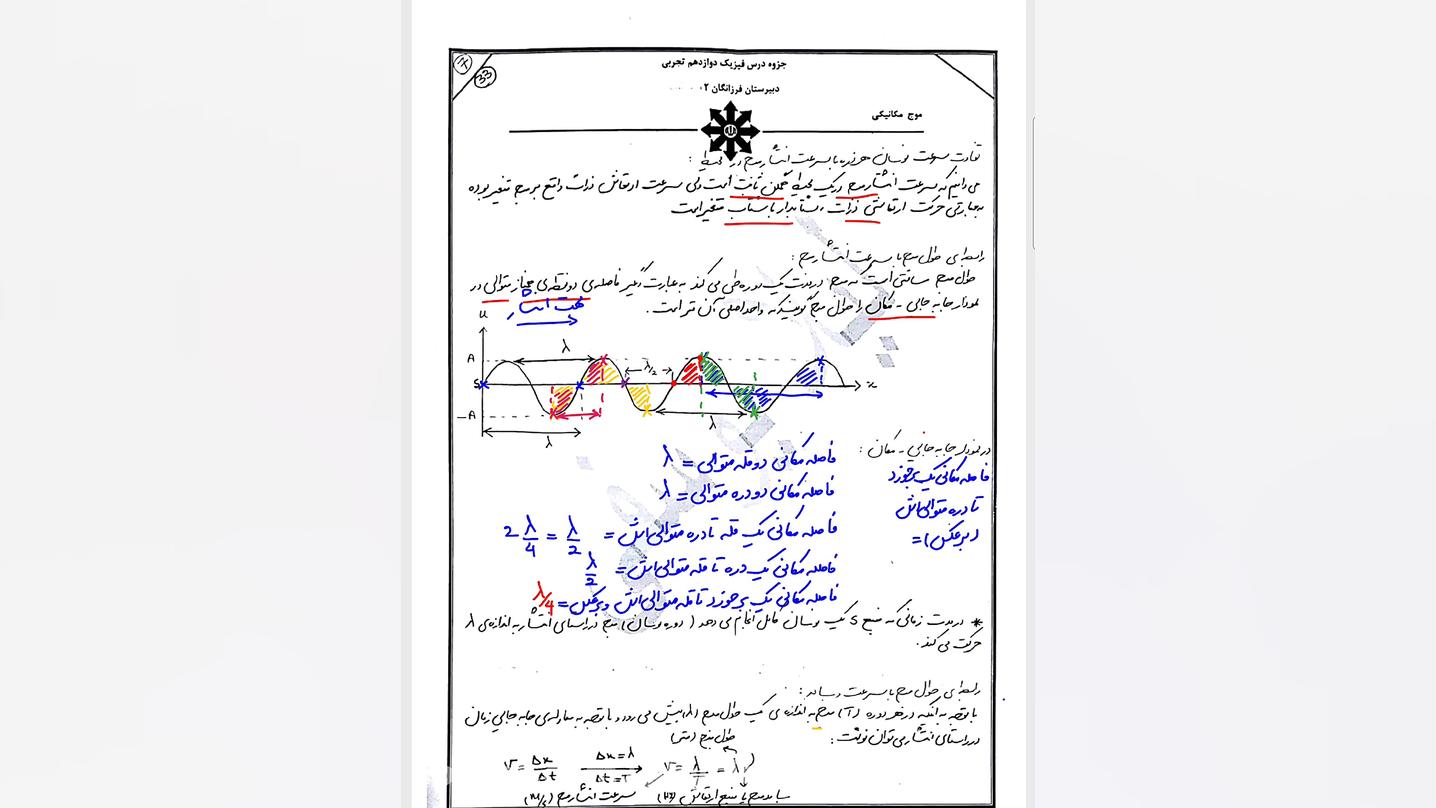 ۱۷
33
جزوه درس فیزیک دوازدهم تجربی
دبیرستان فرزانگان ۲
موج مکانیکی
تفاوت سرعت نوسان هر ذره با سرعت انتشار موج در محیط :
می دانیم که سرعت انتشار موج در یک محیط همگن ثابت است ولی سرعت ارتعاش ذرات واقع بر موج متغیر بوده
به عبارتی حرکت ارتعاشی ذرات شتابدار با شتاب متغیر است
رابطه ای طول موج با سرعت انتشار موج :
طول موج مسافتی است که موج در مدت یک دوره طی می کند به عبارت دیگر فاصله ی دو نقطه ی همفاز متوالی در
نمودار جابه جایی - مکان را طول موج گویند که واحد اصلی آن متر است .
جهت انتشار
u
A
λ
λ/2
S
x
-A
λ
λ
در نمودار جابه جایی - مکان :
فاصله مکانی دو قله متوالی = λ
فاصله مکانی دو دره متوالی = λ
فاصله مکانی یک قله تا دره متوالی اش = 2 λ/4 = λ/2
فاصله مکانی یک دره تا قله متوالی اش = λ/2
فاصله مکانی یک برخورد تا قله متوالی اش و برعکس = λ/4
فاصله مکانی یک برخورد
تا دره متوالی اش
(برعکس) =
* در مدت زمانی که منبع S یک نوسان کامل انجام می دهد ( دوره نوسان ) موج در راستای انتشار به اندازه ی λ
حرکت می کند .
رابطه ای طول موج با سرعت و بسامد :
با توجه به اینکه در هر دوره (T) موج به اندازه ی یک طول موج (λ) پیش می رود و با توجه به معادله ی جابه جایی زمان
در راستای انتشار می توان نوشت :
طول موج (متر)
V = Δx/Δt Δx=λ Δt=T V = λ/T = λν
سرعت انتشار موج (m/s) بسامد موج یا منبع ارتعاش (Hz)